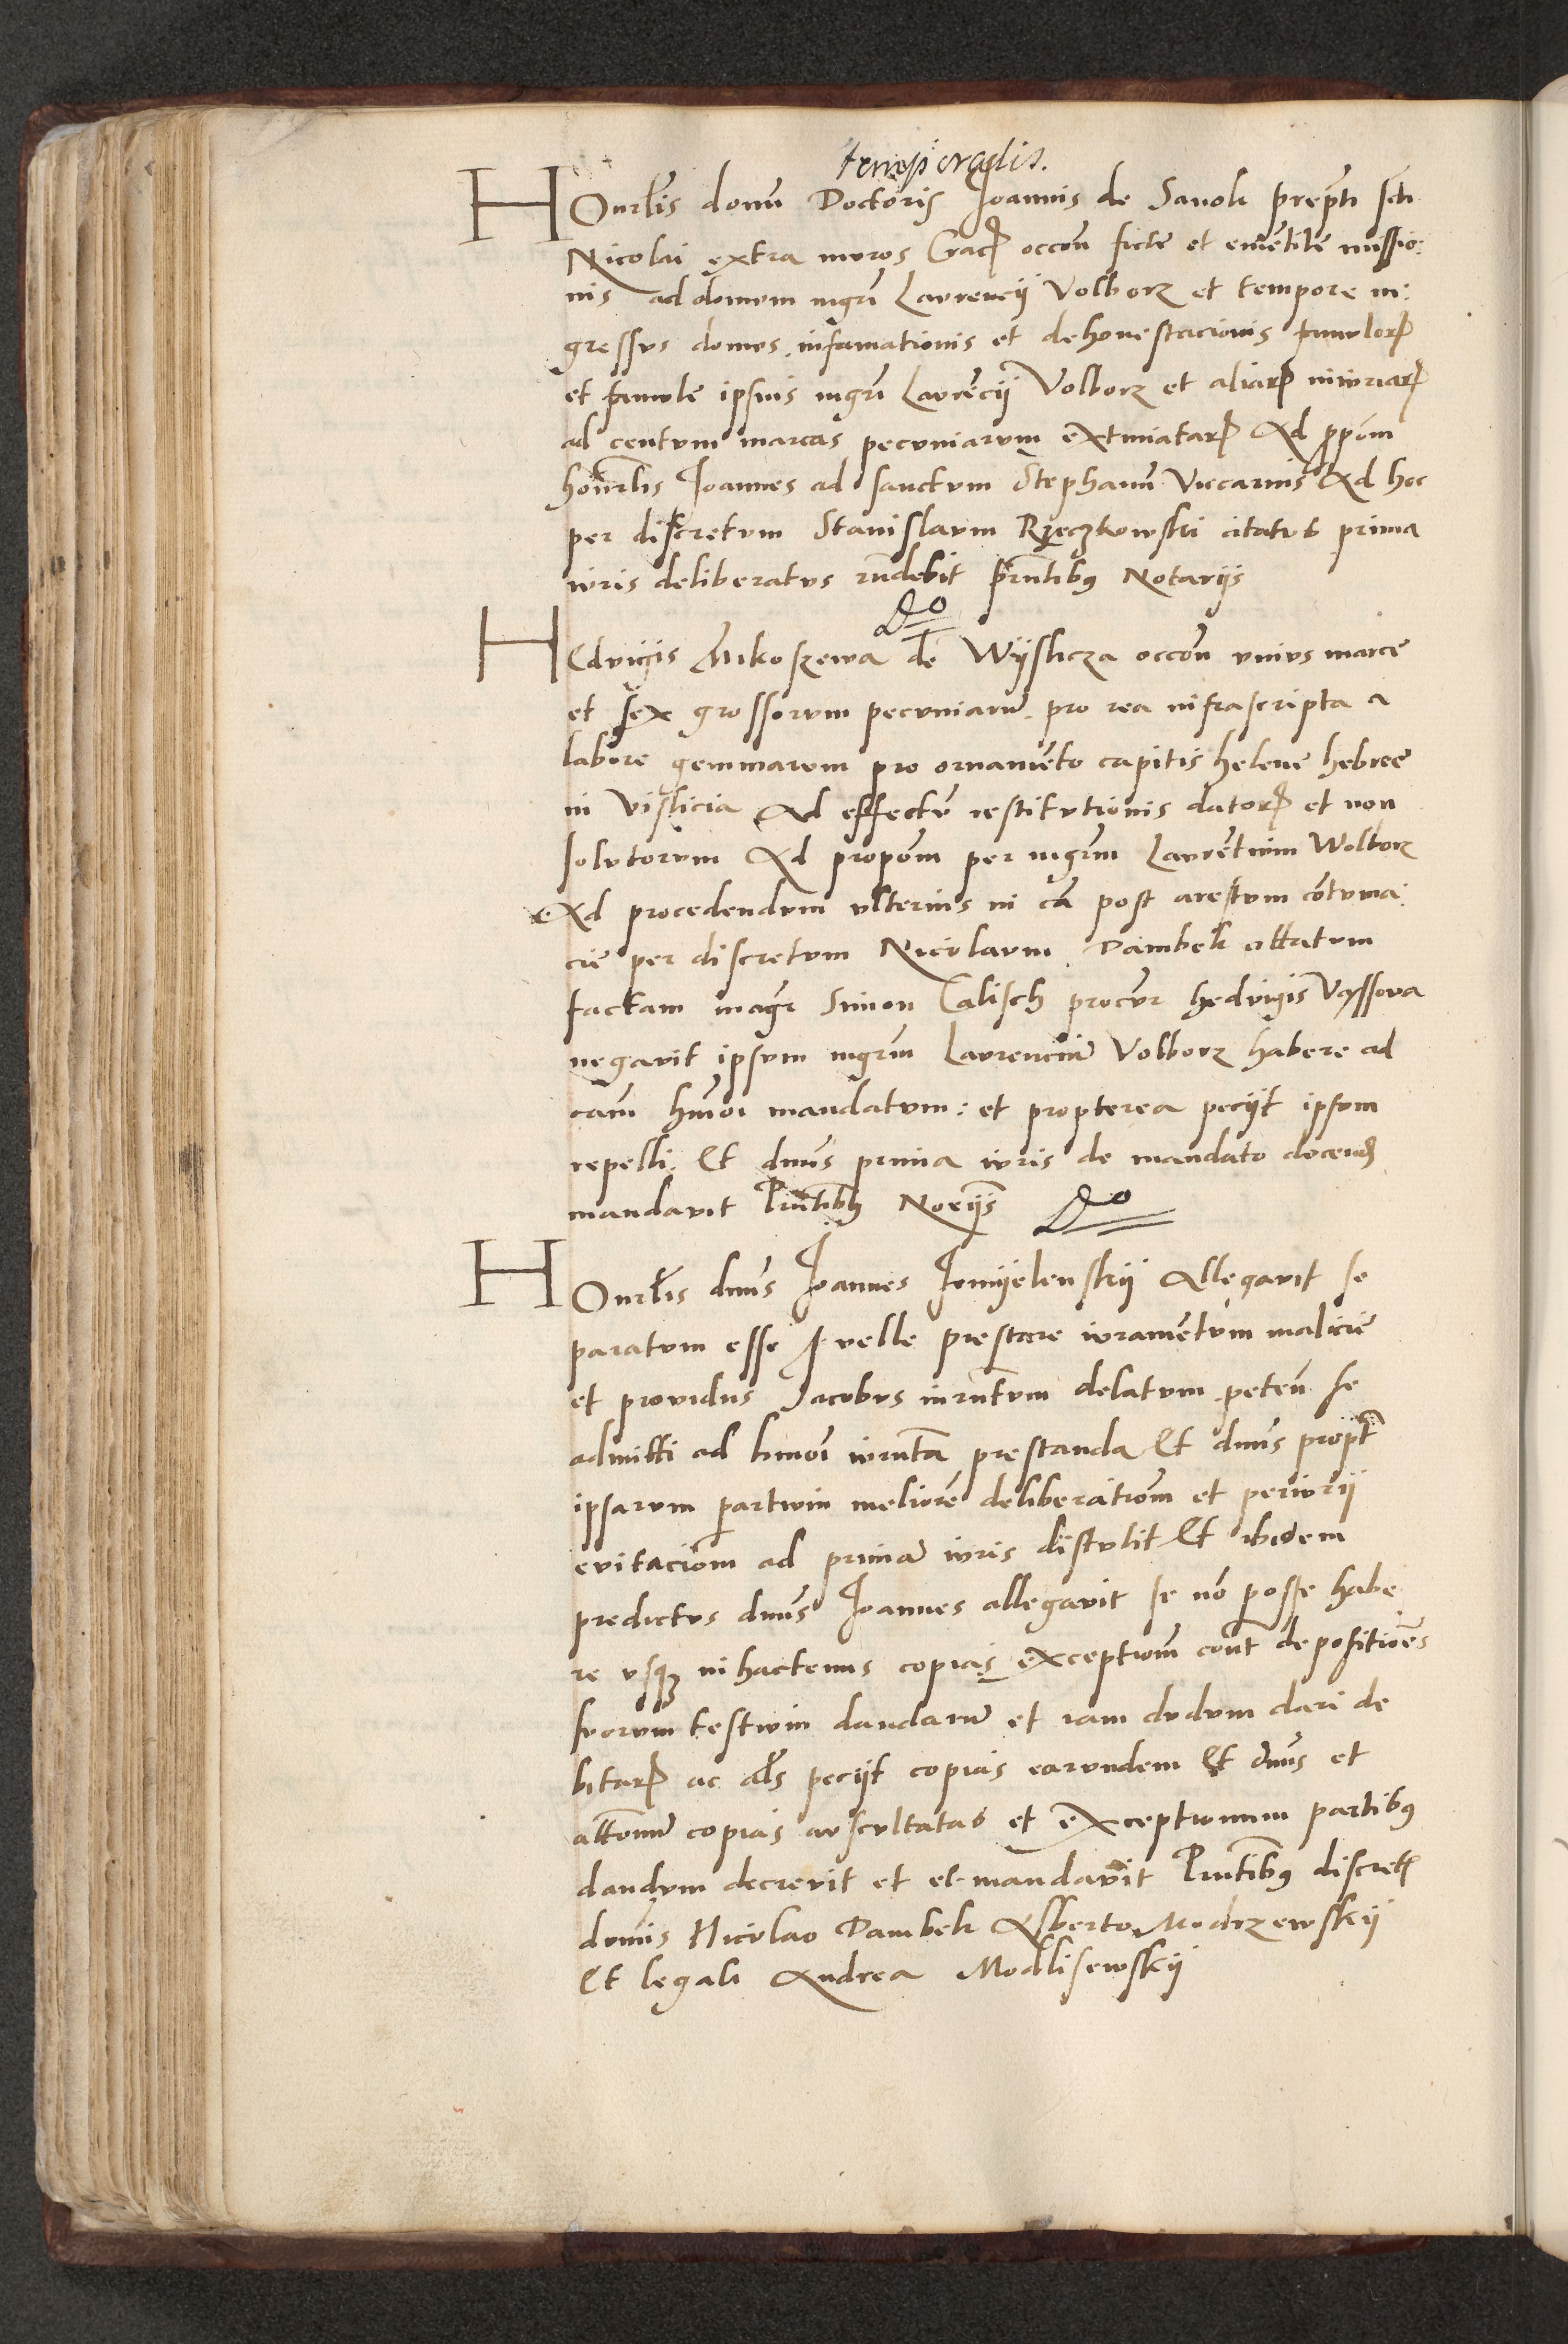 temporalis.
HOnrlis domu Doctoris Joannis de Sanok prepti scti
Nicolai extra muros Crac occon ficte et ementite missio:
nis ad domum mgri Laurencij Volborz et tempore in:
gressus domus infamationis et dehonestacionis famulor
et famule ipsius mgri Laurencij Volborz et aliar iniuriar
ad centum marcas pecuniarum extimatar Ad ppom
honrlis Joannes ad sanctum Stephanu Vicarius Ad hoc
per discretum Stanislaum Rzeczkowski citatus prima
iuris deliberatus rndebit Pntibus Notarijs
Do
HEdvigis Mikoszewa de Wijslicza occon unius marce
et sex grossorum pecuniaru pro rea infrascripta a
labore gemmarum pro ornamento capitis helene hebree
in Vislicia Ad effectu restitutionis dator et non
solutorum Ad propom per mgrm Laurentium Wolborz
Ad procedendum ulterius in ca post arestum contuma:
cie per discretum Nicolaum Dambek obtatum
factam magr Simon Calisch procur hedvigis Vyssova
negavit ipsum mgrm Laurenciu Volborz habere ad
cam hmoi mandatum: et propterea peciit ipsum
repelli Et dnus prima iuris de mandato docend
mandavit Pntibus Norijs Do
HOnrlis dnus Joannes Jemijelenskij Allegavit se
paratum esse et velle prestare iuramentum malicie
et providus Jacobus iurntum delatum peten se
admitti ad hmoi iurnta prestanda Et dnus propt
ipsarum partium meliore deliberationm et periurii
evitacionm ad prima iuris distulit Et ibidem
predictus dnus Joannes allegavit se no posse habe
re usq in hactenus copias exceptionm cont depositiones
suorum testium dandaru et iam dudum dari de
bitar ac als peciit copias earundem Et dnus et
attonu copias auscultatas et exceptionum partibus
dandum decrevit et et mandavit Pntibus discret
domis Nicolao Dambek Alberto Modrzewskij
Et legali Andrea Modlisewskij